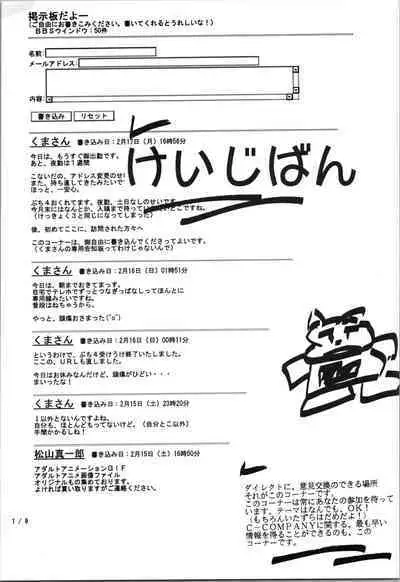 掲示板だよー
(ご自由にお書きこみください。書いてくれるとうれしいな!)
ＢＢＳウインドウ:50件
名前:
メールアドレス:
内容:
書き込み リセット
くまさん 書き込み日:2月17日(月)16時56分
けいじばん
今日は、もうすぐ御出勤です。
あと、夜勤は1週間
こないだの、アドレス変更のせい
また、持ち直してきたみたいで
ほっと、一安心。
ぷち4おくれてます。夜勤、土日なしのせいです。
今月末にはなんとか、入稿まで持って
(けっきょく3と同じになってしまった)
後、初めてここに、訪問された方々へ
このコーナーは、御自由に書き込んでくださってよいです。
(くまさんの専用告知板ってわけじゃないんで)
くまさん 書き込み日:2月16日(日)01時51分
今日は、朝までおきてまっす。
在宅でテレホでずっとつなぎっぱなしってほんとに
専用線みたいですね。
普段はねちゃうから。
やっと、頭痛おさまった(^o^)
くまさん 書き込み日:2月16日(日)00時11分
というわけで、ぷち4受けうけ終了いたしました。
この、ＵＲＬも直しました。
今日はお休みなんだけど、頭痛がひどい・・・
まいったな!
くまさん 書き込み日:2月15日(土)23時20分
1以外とないんですよね。
自分も、ほとんどもってないけど、(自分とこ以外)
手間かかるしね!
松山真一郎 書き込み日:2月15日(土)16時50分
アダルトアニメーションＧＩＦ
アダルトアニメ画像ファイル
オリジナルもの集めております。
よければ買い取りますがご連絡ください。
ダイレクトに、意見交換のできる場所
それがこのコーナーです。
このコーナーは常にあなたの参加を待って
います。テーマはなんでも、OK!
(もちろんいたずらはだめだよ!)
C－COMPANYに関する、最も早い
情報を得ることができるのも、この
コーナーです。